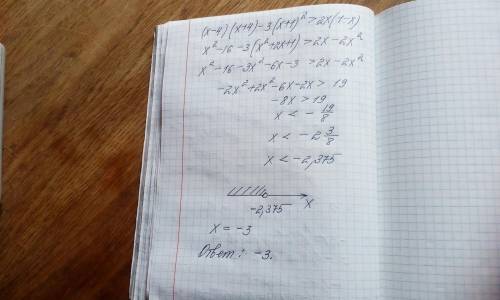 (x-4)(x+4)-3(x+1)²>2x(1-x)
x²-16-3(x²+2x+1)>2x-2x²
x²-16-3x²-6x-3>2x-2x²
-2x²+2x²-6x-2x>19
-8x>19
x<-19/8
x<-2 3/8
x<-2,375
-2,375 x
x=-3
Ответ: -3.